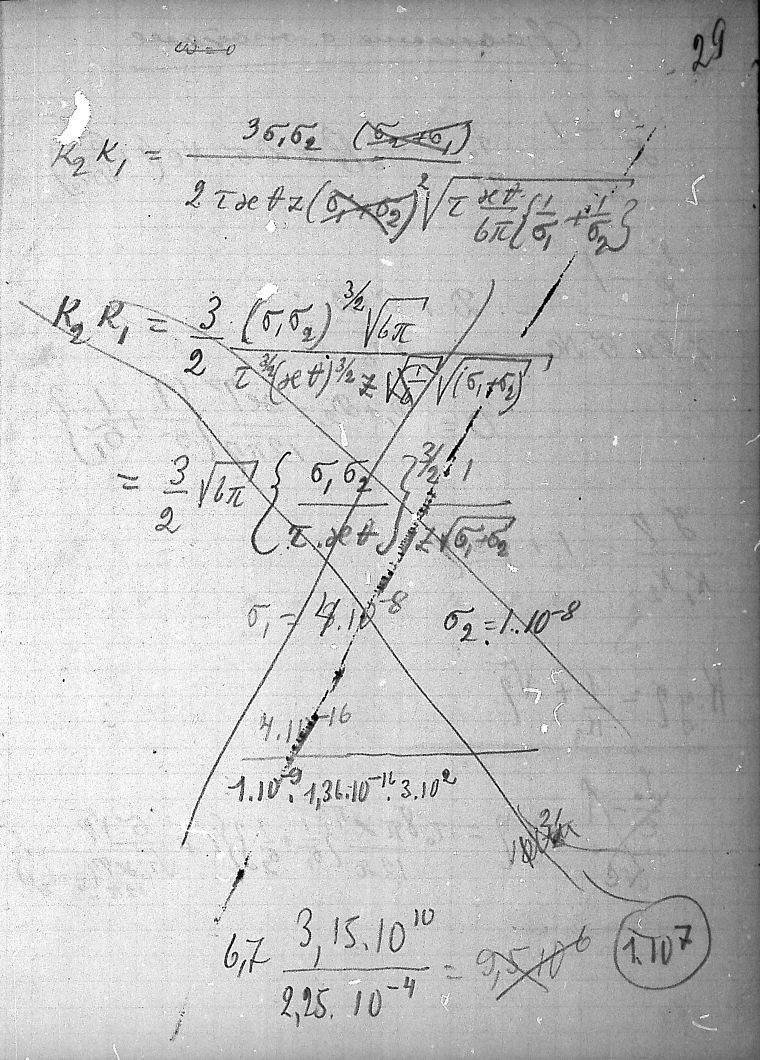 29
K₂ K₁ = 3σ₁σ₂ (σ₂+σ₁) / 2τϰtz(σ₁+σ₂)² √(τ ϰt/6π {1/σ₁ + 1/σ₂})
K₂ K₁ = 3/2 (σ₁σ₂)^3/2 √6π / τ^3/2 (ϰt)^3/2 z √(σ₁+σ₂)
= 3/2 √6π {σ₁σ₂ / τ.ϰt}^3/2 1 / z√(σ₁+σ₂)
σ₁ = 4.10⁻⁸ σ₂ = 1.10⁻⁸
4.10⁻¹⁶
1.10⁻⁹ . 1,36.10⁻¹⁶ . 3.10²
6,7 3,15.10¹⁰ / 2,25.10⁻⁴ = 9,5.10⁶ 1.10⁷